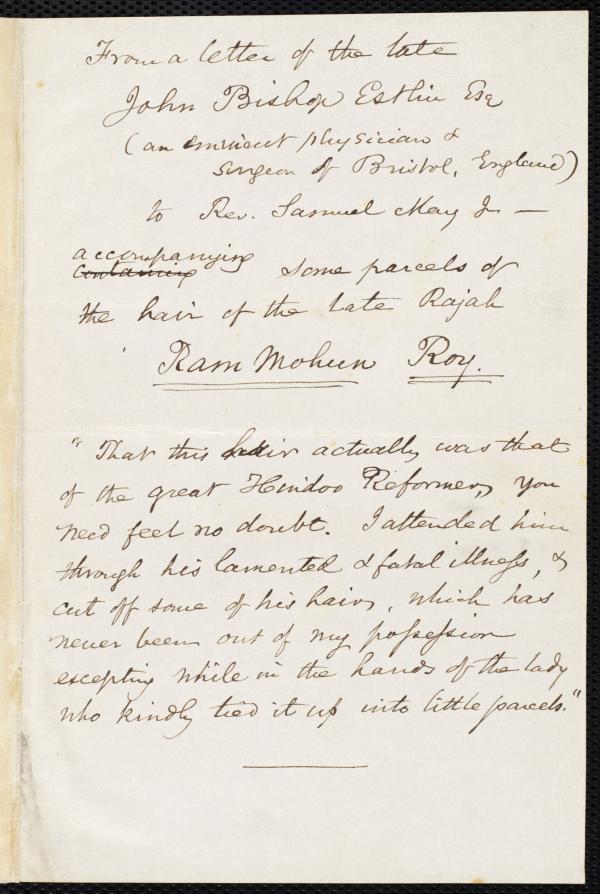 From a letter of the late
John Bishop Estlin Esq
(an eminent physician &
surgeon of Bristol, England)
to Rev. Samuel May Jr —
accompanying
containing some parcels of
the hair of the late Rajah
Ram Mohun Roy.
"That this hair actually was that
of the great Hindoo Reformer, you
need feel no doubt. I attended him
through his lamented & fatal illness, &
cut off some of his hair, which has
never been out of my possession
excepting while in the hands of the lady
who kindly tied it up into little parcels."